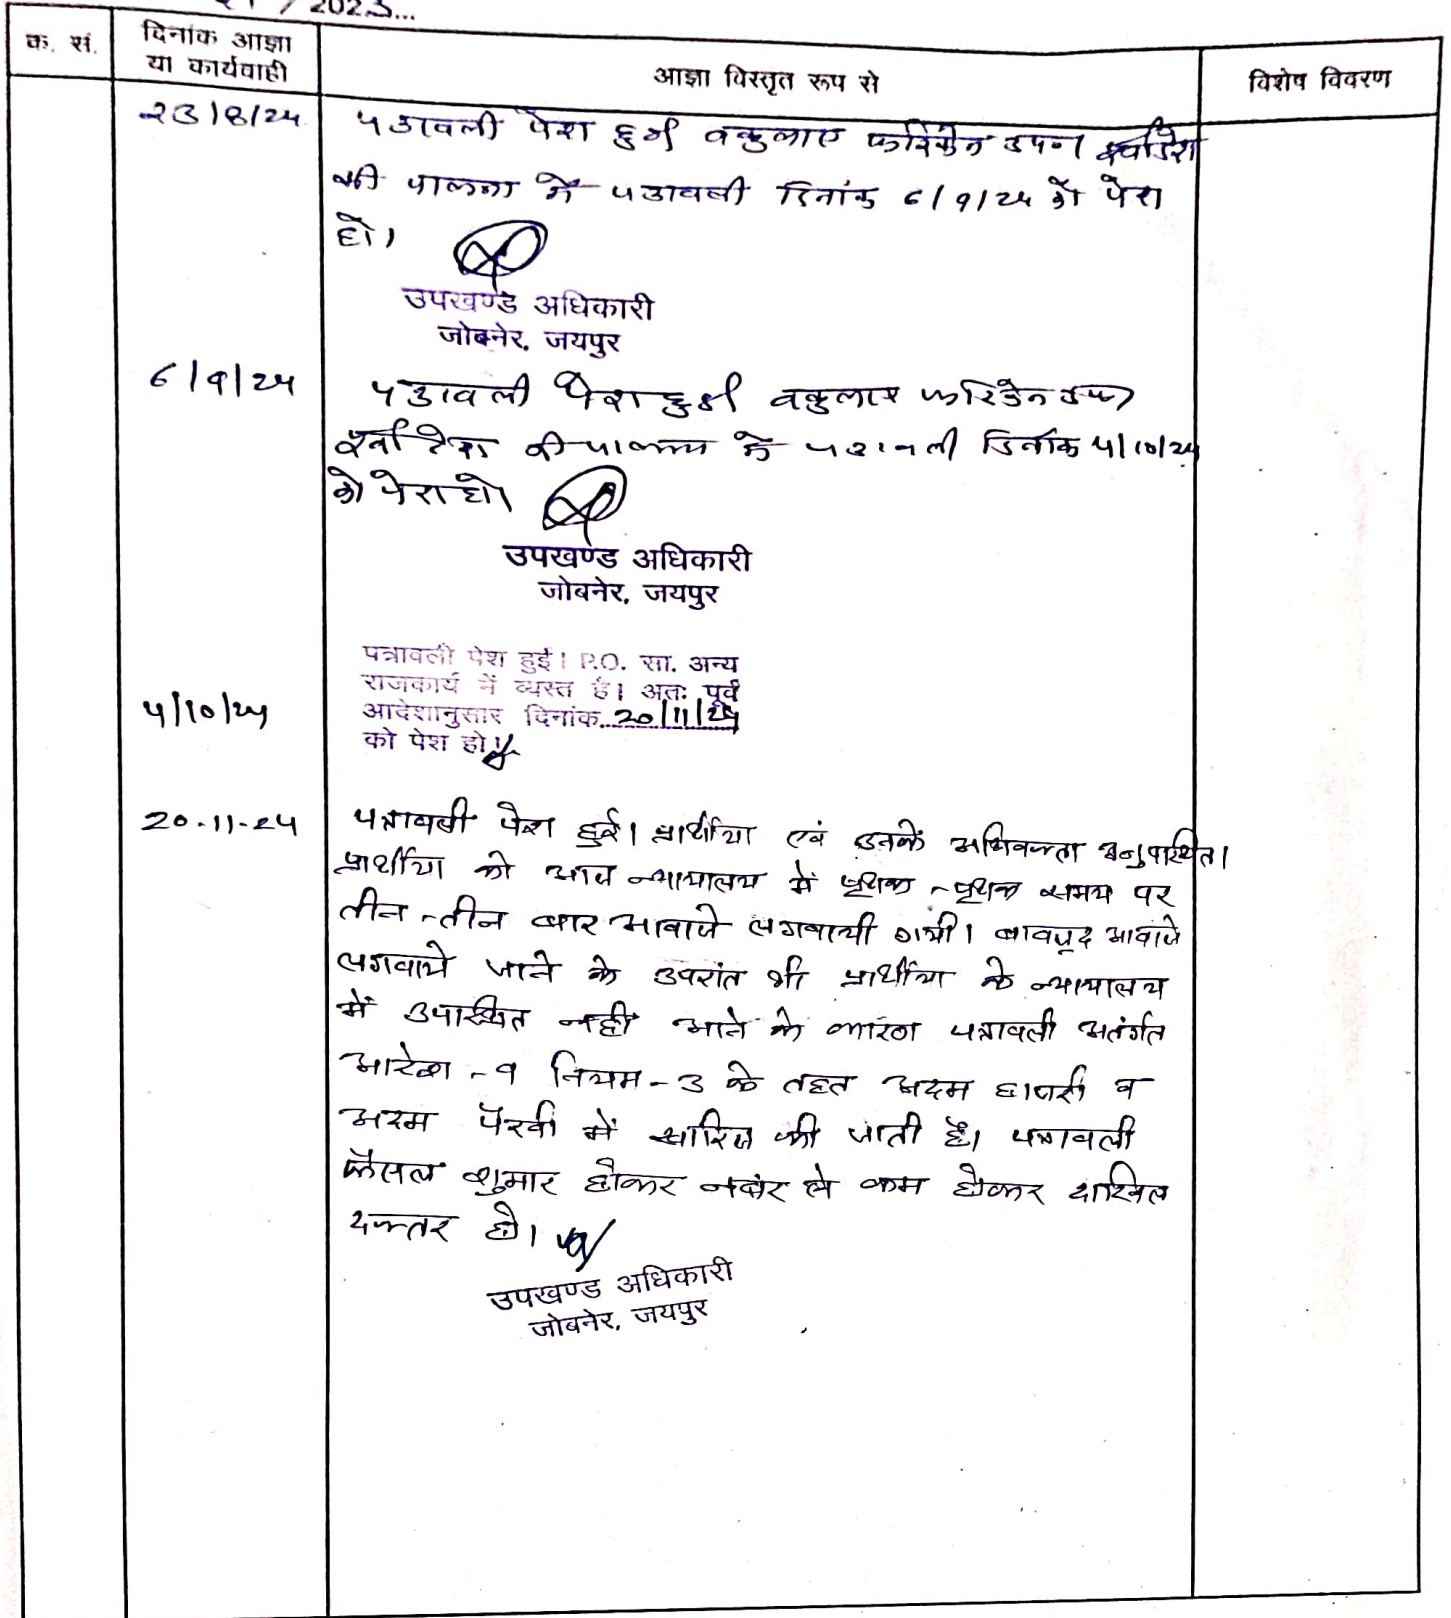 / 202
क. सं. दिनांक आज्ञा या कार्यवाही आज्ञा विस्तृत रूप से विशेष विवरण
23/8/24 पत्रावली पेश हुई वकुलाए फरिकेन उप०
की पालना में पत्रावली दिनांक 6/9/24 को पेश
हो।
उपखण्ड अधिकारी
जोबनेर, जयपुर
6/9/24 पत्रावली पेश हुई वकुलाए फरिकेन उप०
की पालना में पत्रावली दिनांक 4/10/24
को पेश हो।
उपखण्ड अधिकारी
जोबनेर, जयपुर
पत्रावली पेश हुई। P.O. सा. अन्य
राजकार्य में व्यस्त है। अतः पूर्व
4/10/24 आदेशानुसार दिनांक 20/11/24
को पेश हो।
20-11-24 पत्रावली पेश हुई। प्रार्थीया एवं उनके अधिवक्ता अनुपस्थित।
प्रार्थीया को आज न्यायालय में पृथक-पृथक समय पर
तीन-तीन बार आवाजे लगवायी गयी। बावजूद आवाजे
लगवाये जाने के उपरांत भी प्रार्थीया के न्यायालय
में उपस्थित नही आने के कारण पत्रावली अतंर्गत
आदेश-9 नियम-3 के तहत अदम हाजरी व
अदम पैरवी में खारिज की जाती है। पत्रावली
फैसल शुमार होकर नबंर से कम होकर दाखिल
दफ्तर हो।
उपखण्ड अधिकारी
जोबनेर, जयपुर